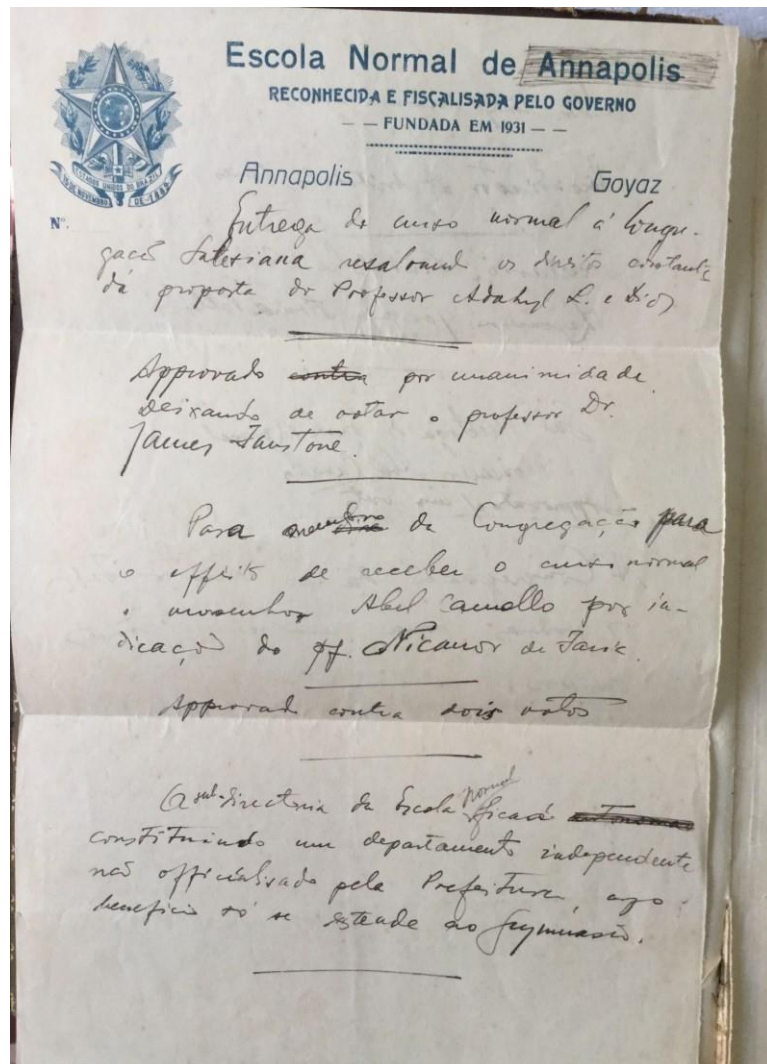 Escola Normal de Annapolis
RECONHECIDA E FISCALISADA PELO GOVERNO
— — FUNDADA EM 1931 — —
Annapolis Goyaz
ESTADOS UNIDOS DO BRAZIL
15 DE NOVEMBRO DE 1889
Nº.
Entrega do curso normal á Congre-
gação Salesiana resalvand os direitos constante
da proposta do Professor Adahyl L. e Dio)
Approvado contra por unanimidade
deixando de votar o professor Dr.
James Fanstone.
Para membro da Congregação para
o effeito de receber o curso normal
o monsenhor Abel Camello por in-
dicação do pf. Nicanor de Faria.
Approvad contra dois votos
A sub-directoria da Escola normal ficará autonoma
constituindo um departamento independente
não officialisado pela Prefeitura, cujo
beneficio só se estende ao Gymnasio.